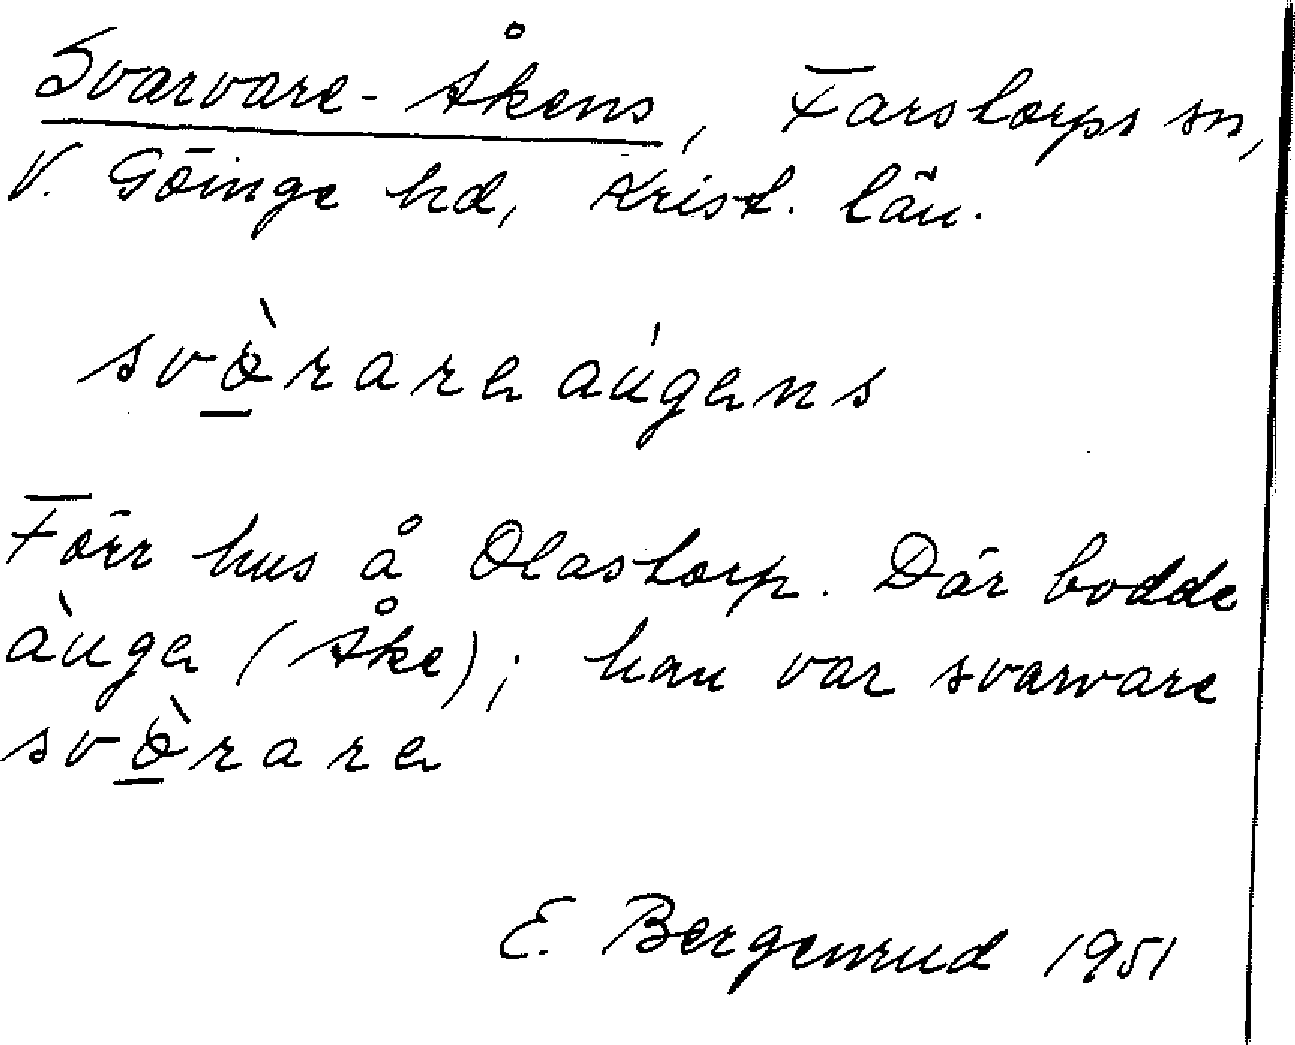 Svarvare-Åkens, Farstorps sn,
V. Göinge hd, Krist. län.
svò̲rareaúgens
Förr hus å Olastorp. Där bodde
àuga (Åke); han var svarvare
svò̲rare
E. Bergenrud 1951